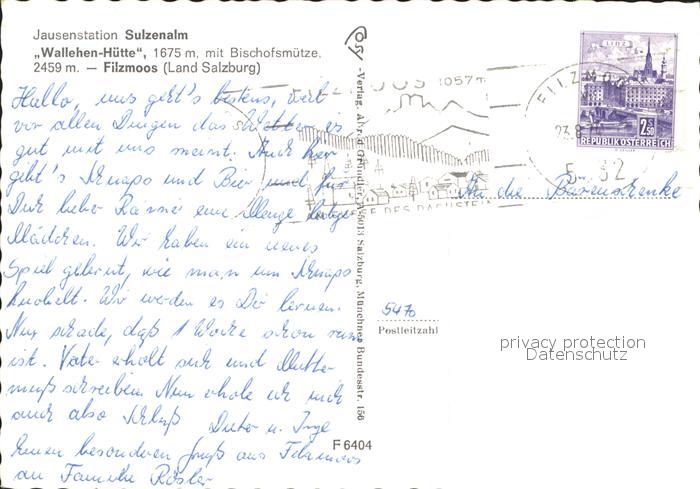 Jausenstation Sulzenalm
„Wallehen-Hütte“, 1675 m, mit Bischofsmütze,
2459 m. — Filzmoos (Land Salzburg)
Hallo, uns geht's bestens, weil
vor allen Dingen das es
gut mit uns meint. Auch hier
geht's Schnaps und Bier und für
Dich lieber Rainer eine Menge
Mädchen. Wir haben ein neues
Spiel gelernt, wie man um Schnaps
knobelt. Wir werden es Dir lernen.
Nur schade, daß 1 Woche schon rum
ist. Vater erholt sich und Mutter
muß schreiben. Nun erhole ich mich
auch also Schluß Dieter u. Inge
Einen besonderen Gruß aus Filzmoos
an Familie Rösler
Cosy-Verlag, Alfred Gründler, A-5013 Salzburg, Münchner Bundesstr. 156
F 6404
1057 m
FILZMOOS
23.8.
5532
DES DACHSTEIN
LINZ
2.50
REPUBLIK ÖSTERREICH
An die Bärenschenke
5470
Postleitzahl
privacy protection
Datenschutz